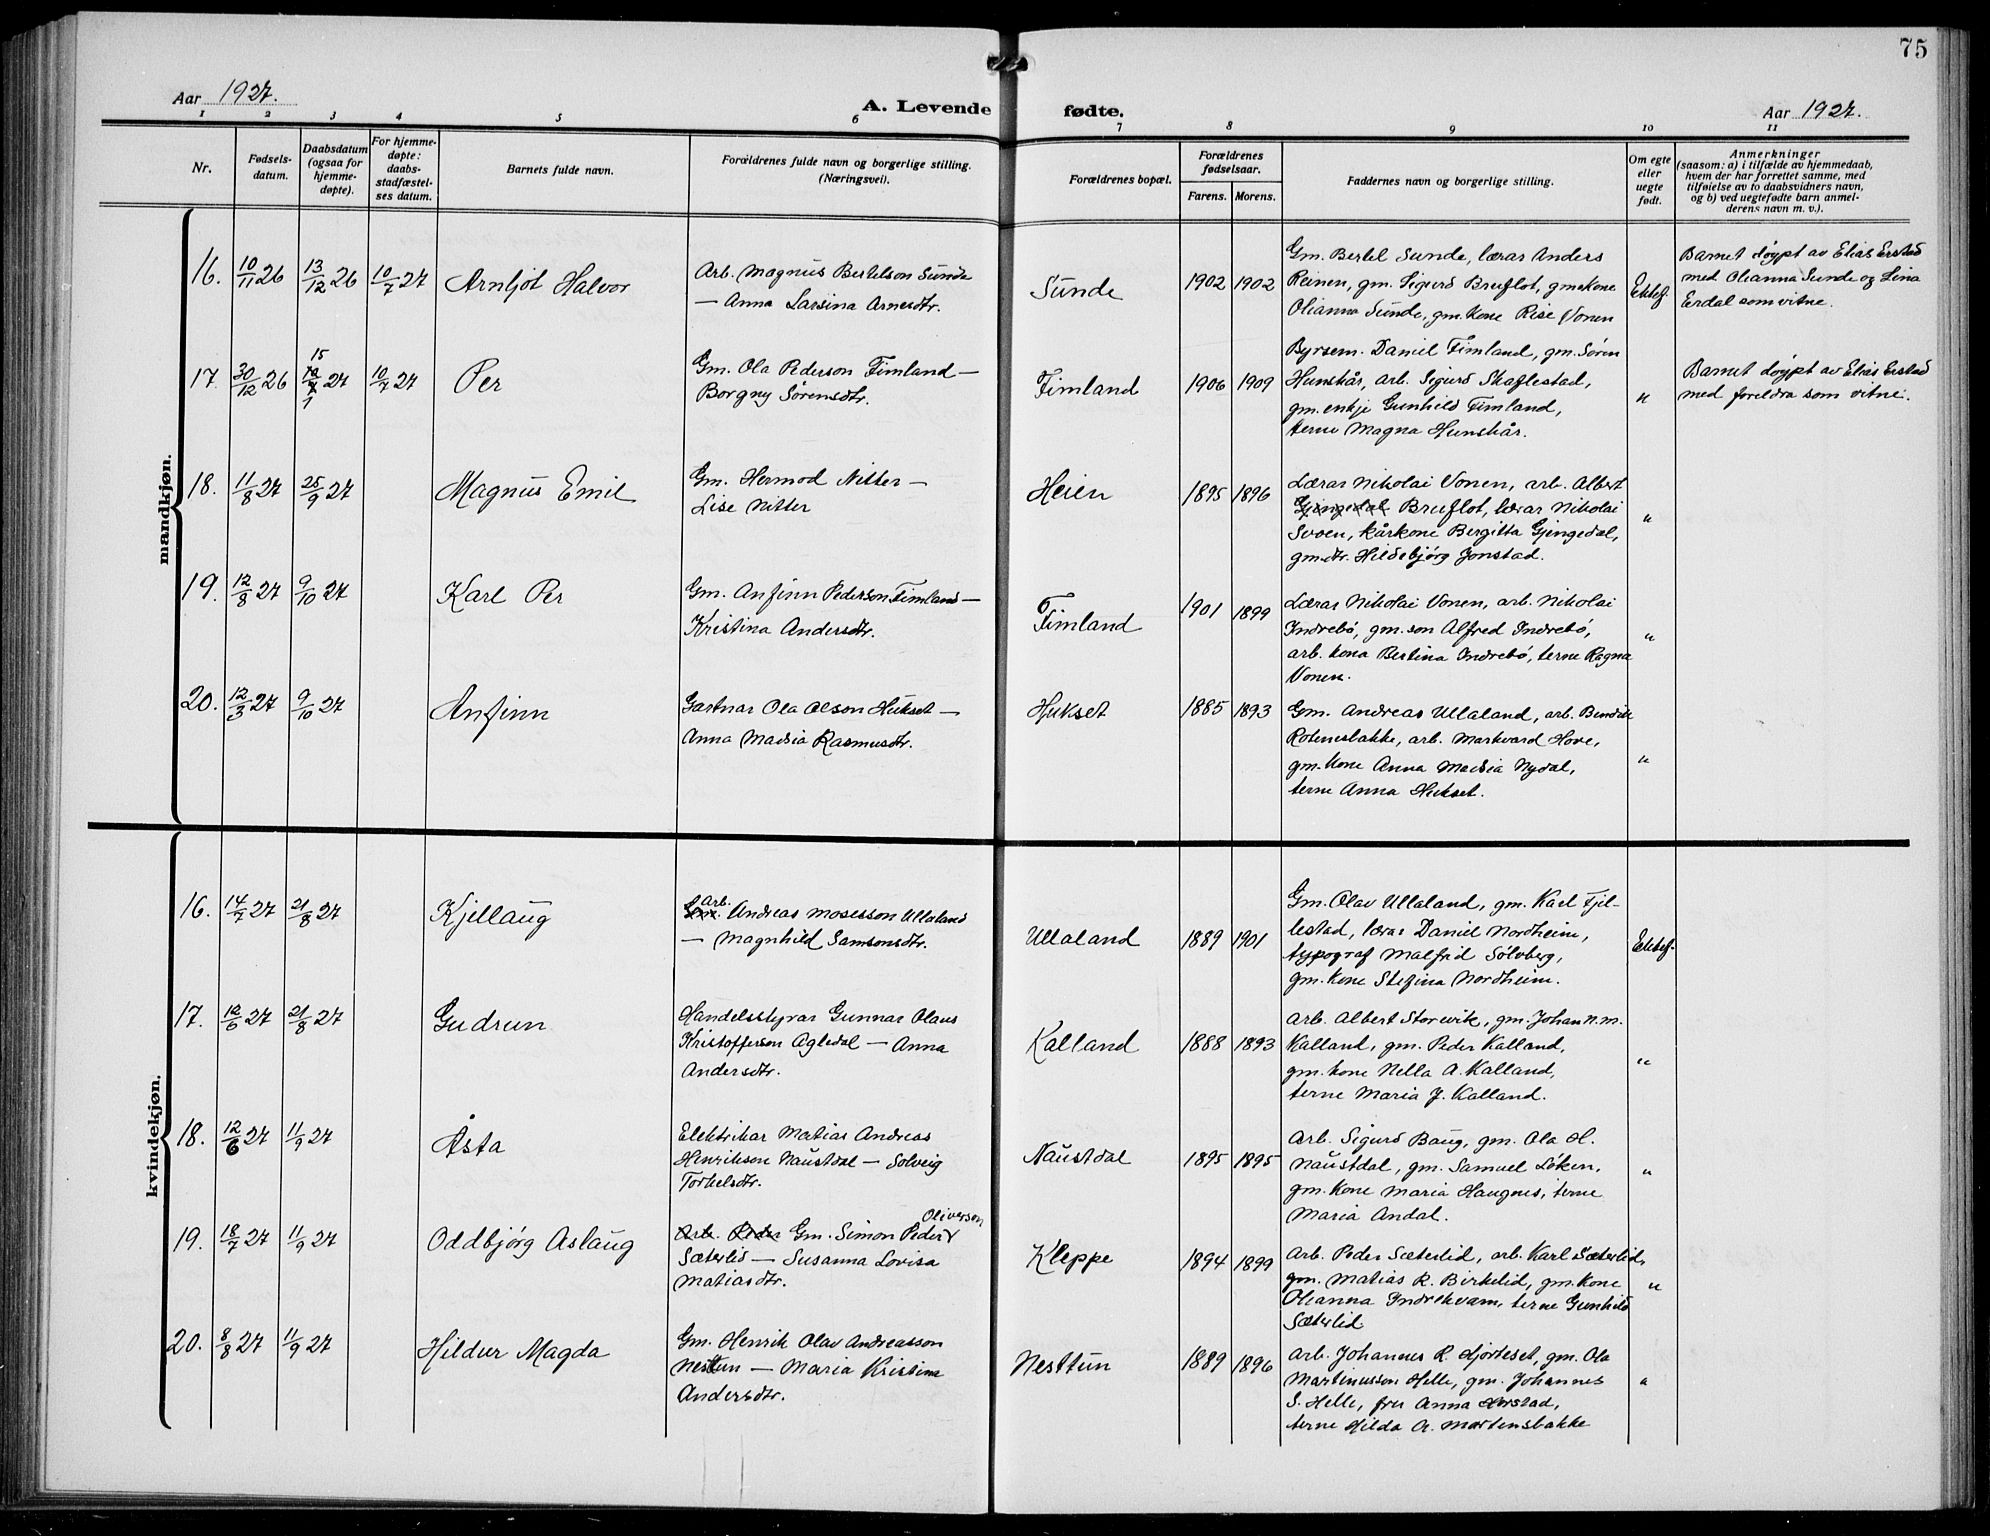 75
Aar 1927.
A. Levende fødte.
Aar 1927.
1 2 3 4 5 6 7 8 9 10 11
Nr.
Fødsels-
datum.
Daabsdatum
(ogsaa for
hjemme-
døpte).
For hjemme-
døpte:
daabs-
stadfæstel-
ses datum.
Barnets fulde navn.
Forældrenes fulde navn og borgerlige stilling.
(Næringsvei).
Forældrenes bopæl.
Forældrenes
fødselsaar.
Farens. Morens.
Faddernes navn og borgerlige stilling.
Om egte
eller
uegte
født.
Anmerkninger
(saasom: a) i tilfælde av hjemmedaab,
hvem der har forrettet samme, med
tilføielse av to daabsvidners navn,
og b) ved uegtefødte barn anmel-
derens navn m. v.).
mandkjøn.
16. 10/11 26 13/12 26 10/7 27 Arnljot Halvor
Arb. Magnus Bertelson Sunde
— Anna Larsina Arnesdtr.
Sunde 1902 1902
Gm. Bertel Sunde, lærar Anders
Reinen, gm. Sigurd Bruflot, gmskone
Olianna Sunde, gm. kone Rise Vonen
Ektef.
Barnet døypt av Elias Erstad
med Olianna Sunde og Lina
Erdal som vitne.
17. 30/12 26 15/1 27 10/7 27 Per
Gm. Ola Pederson Fimland —
Borgny Sørensdtr.
Fimland 1906 1909
Byrsem. Daniel Fimland, gm. Søren
Hunskår, arb. Sigurd Skaflestad,
gm. enkje Gunhild Fimland,
terne Magna Hunskår.
"
Barnet døypt av Elias Erstad
med foreldra som vitne.
18. 11/8 27 25/9 27 Magnus Emil
Gm. Hermod Nitter —
Lise Nitter
Heien 1895 1896
Lærar Nikolai Vonen, arb. Albert
Gjengedal Bruflot, lærar Nikolai
Svoen, kårkone Bergitta Gjengedal,
gmdtr. Hildebjørg Jonstad.
"
19. 12/8 27 9/10 27 Karl Per
Gm. Anfinn Pederson Fimland —
Kristina Andersdtr.
Fimland 1901 1899
Lærar Nikolai Vonen, arb. Nikolai
Indrebø, gm. son Alfred Indrebø,
arb. kona Bertina Indrebø, terne Ragna
Vonen.
"
20. 12/3 27 9/10 27 Anfinn
Gartnar Ola Olson Hukset —
Anna Madsia Rasmusdtr.
Hukset 1885 1893
Gm. Andreas Ullaland, arb. Bendik
Rotenesbakke, arb. Markvard Hove,
gm. kone Anna Madsia Nydal,
terne Anna Hukset.
"
kvindekjøn.
16. 14/7 27 21/8 27 Kjellaug
Arb. Andreas Mosesson Ullaland
— Magnhild Samsonsdtr.
Ullaland 1889 1901
Gm. Olav Ullaland, gm. Karl Fjel-
lestad, lærar Daniel Nordheim,
typograf Malfrid Sølvberg,
gm. kone Stefina Nordheim.
Ektef.
17. 12/6 27 21/8 27 Gudrun
Handelsstyrar Gunnar Olaus
Kristofferson Agledal — Anna
Andersdtr.
Kalland 1888 1893
Arb. Albert Storevik, gm. Johan N. M.
Kalland, gm. Peder Kalland,
gm. kone Nella A. Kalland,
terne Maria J. Kalland.
"
18. 12/6 27 11/9 27 Åsta
Elektrikar Matias Andreas
Henrikson Naustdal — Solveig
Torkelsdtr.
Naustdal 1895 1895
Arb. Sigurd Baug, gm. Ola H.
Naustdal, gm. Samuel Løken,
gm. kone Maria Haugnes, terne
Maria Andal.
"
19. 18/7 27 11/9 27 Oddbjørg Aslaug
Oliverson
Arb. Peder Gm. Simon Peder
Sæterlid — Susanna Lovisa
Matiasdtr.
Kleppe 1894 1899
Arb. Peder Sæterlid, arb. Karl Sæterlid,
gm. Matias R. Birkelid, gm. kone
Olianna Indrekvam, terne Gunhild
Sæterlid
"
20. 8/8 27 11/9 27 Hildur Magda
Gm. Henrik Olav Andreasson
Nesttun — Maria Kristina
Andersdtr.
Nesttun 1889 1896
Arb. Johannes R. Hjorteset, gm. Ola
Martinusson Helle, gm. Johannes
S. Helle, fru Anna Horstad,
terne Hilda A. Mortensbakke
"